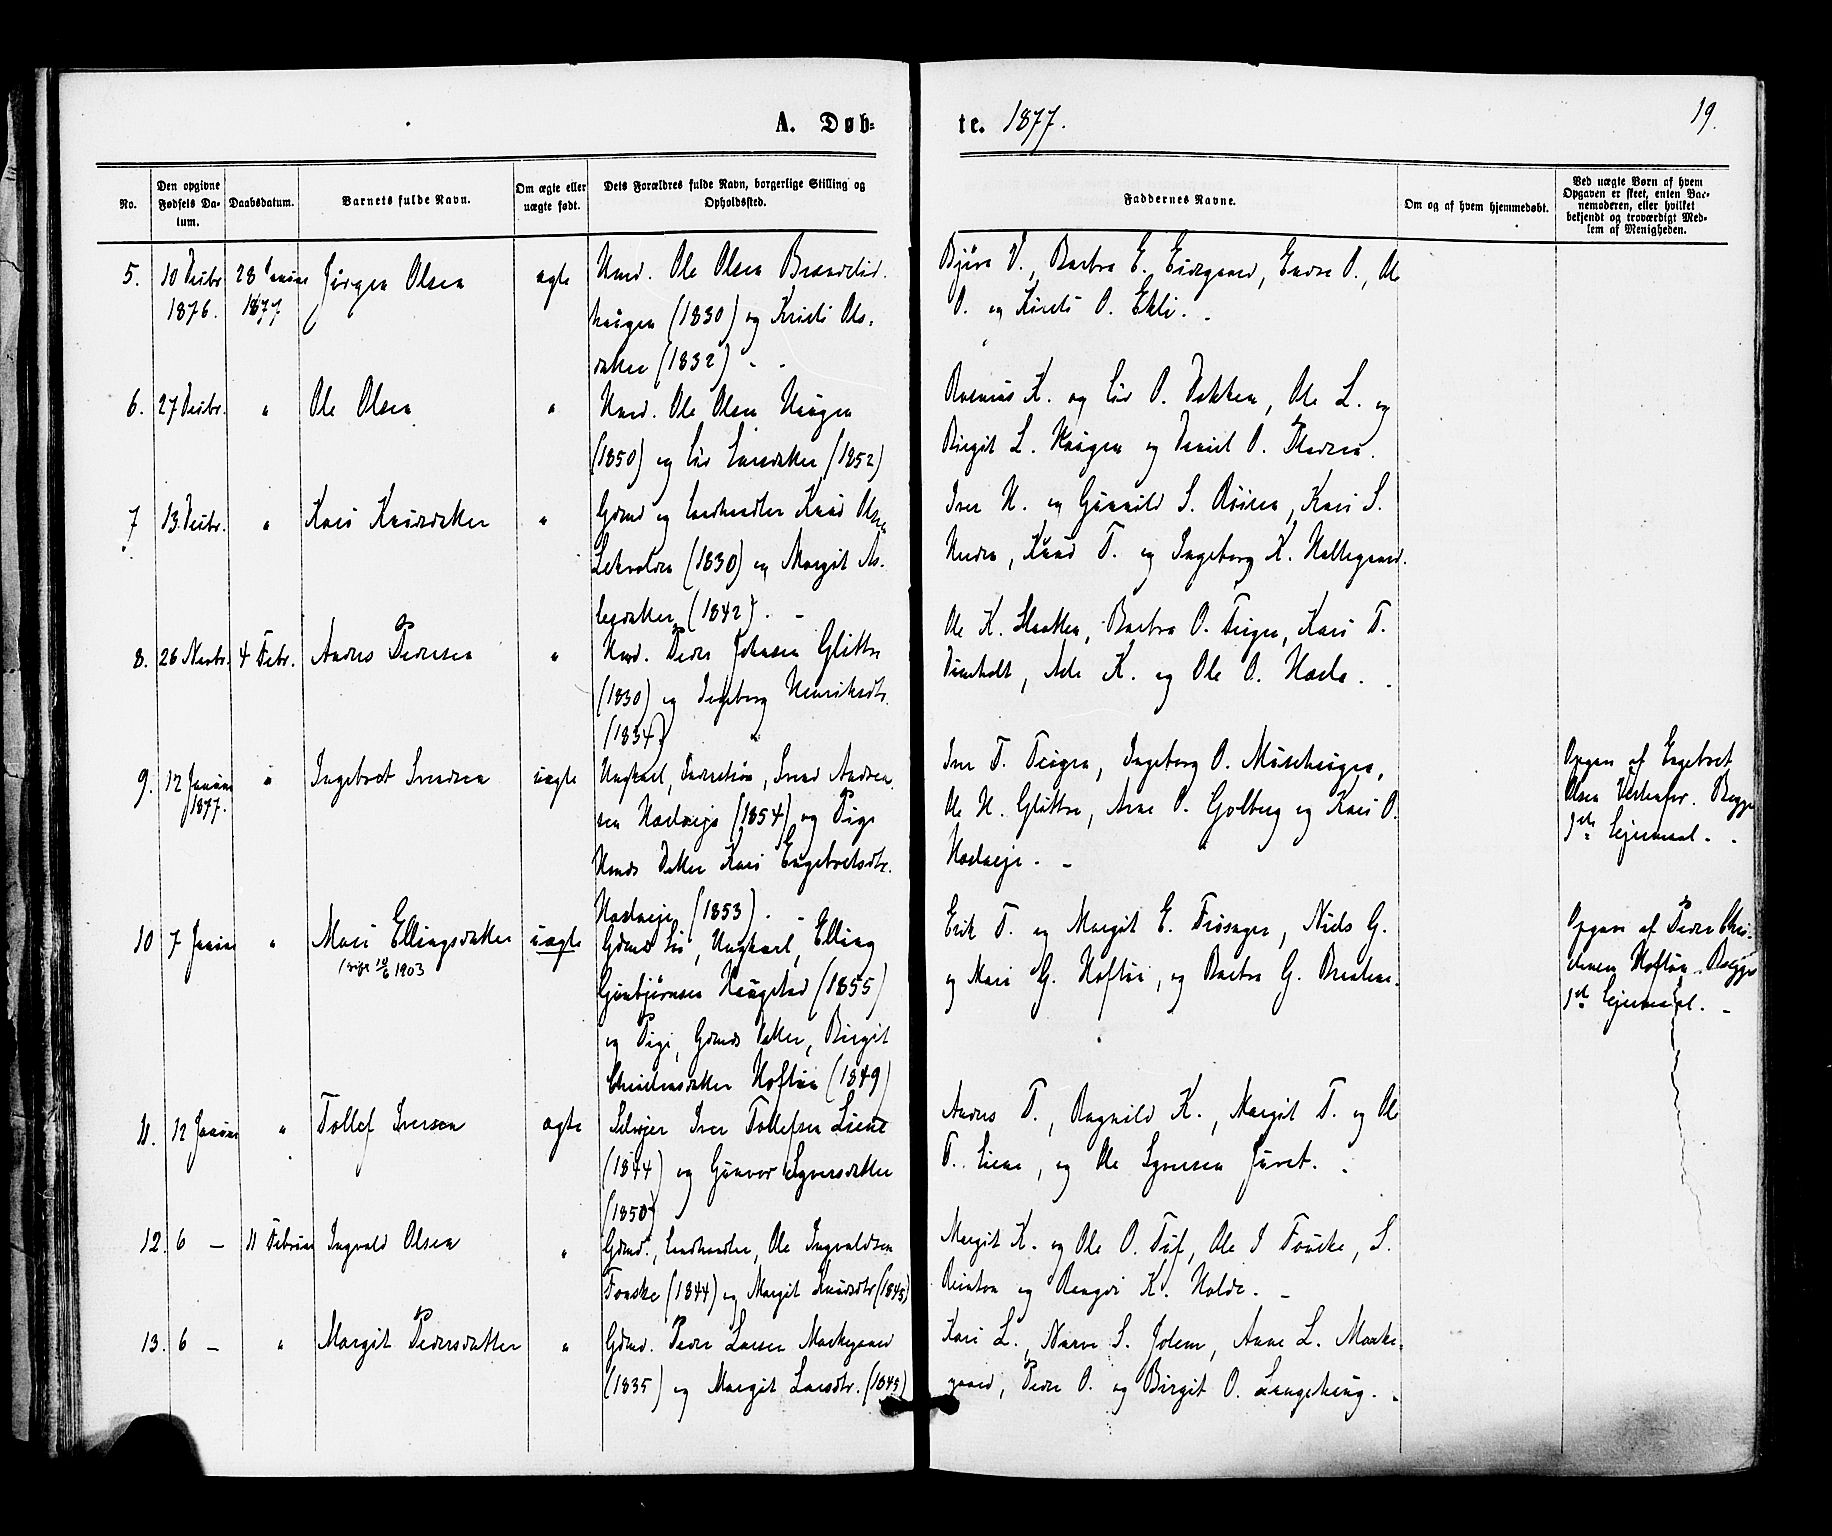 A. Døb-
te. 1877.
19.
No.
Den opgivne
Fødsels Da-
tum.
Daabsdatum.
Barnets fulde Navn.
Om ægte eller
uægte født.
Dets Forældres fulde Navn, borgerlige Stilling og
Opholdssted.
Faddernes Navne.
Om og af hvem hjemmedøbt.
Ved uægte Børn af hvem
Opgaven er skeet, enten Bar-
nemoderen, eller hvilket
bekjendt og troværdigt Med-
lem af Menigheden.
5. 10 Decbr 28 Januar Jørgen Olsen ægte Hmd. Ole Olsen
1876. 1877
haugen (1830) og Kristi Ols-
datter (1832)
Bjørn O., Barbra E. Eidsgaard, Endre O., Ole
O. og Kirsti O. Ekli.
6. 27 Decbr. " Ole Olsen " Hmd. Ole Olsen Haugen
(1850) og Liv Larsdatter (1852)
K. og Liv O. Dokken, Ole L. og
Birgit L. Haugen og Daniel O.
7 13. Decbr. " Kari Knudsdatter " Gdmd og Landhandler Knud Olsen
(1830) og Margit As-
lesdatter (1842).
Iver H. og Gunnild S. Røisen, Kari S.
Knud T. og Ingeborg K. Hallegaard.
8. 26 Novbr. 4 Febr. Andres Pedersen " Hmd. Peder Johnsen Glittre
(1830) og Ingeborg Henriksdtr.
(1834)
Ole K. Slaatten, Barbra O. Teigen, Kari T.
K. og Ole O.
9. 12 Januar " Ingebret Svendsen uægte Ungkarl, Inderst Søn, Svend Andrea-
1877.
sen (1854) og Pige
Hmds Datter Kari Engebretsdtr.
(1853).
Iver T. Teigen, Ingeborg O. Mosehaugen,
Ole H. Glittre, Arne O. Golberg og Kari O.
Opgav. af Engebret
Olsen
1ste Leiermaal.
10 7 Januar " Mari Ellingsdatter uægte Gdmds Søn, Ungkarl, Elling
10/6 1903
Gunbjørnsen Haugstad (1855)
og Pige, Gdmds Datter, Birgit
Christensdatter Hoftun (1849)
Erik T. og Margit E. Nids G.
og Mari G. Hoftun, og Barbra G.
Opgav. af Peder Chri-
stensen Hoftun. Begges
1st Leiermaal.
11. 12 Januar " Tollef Iversen ægte Selveier Iver Tollefsen Liene
(1844) og Gunvor Syversdatter
(1850)
Andres T., Ragnild K., Margit T. og Ole
T. Liene, og Ole Syversen Juvet.
12. 6 — 11 Februar Ingvald Olsen " Gdmd., Landhandler, Ole Ingvaldsen
Fonske (1844) og Margit Knudsdtr (1845)
Margit K. og Ole O. Tuf, Ole I Fonske, S.
Reinton og Rangdi K. Holde.
13. 6 — " Margit Pedersdatter " Gdmd. Peder Larsen Markegaard
(1835) og Margit Larsdtr. (1843)
Kari L., Narve S. Jolem, Anne L. Marke-
gaard, Peder O. og Birgit O. Langehaug.